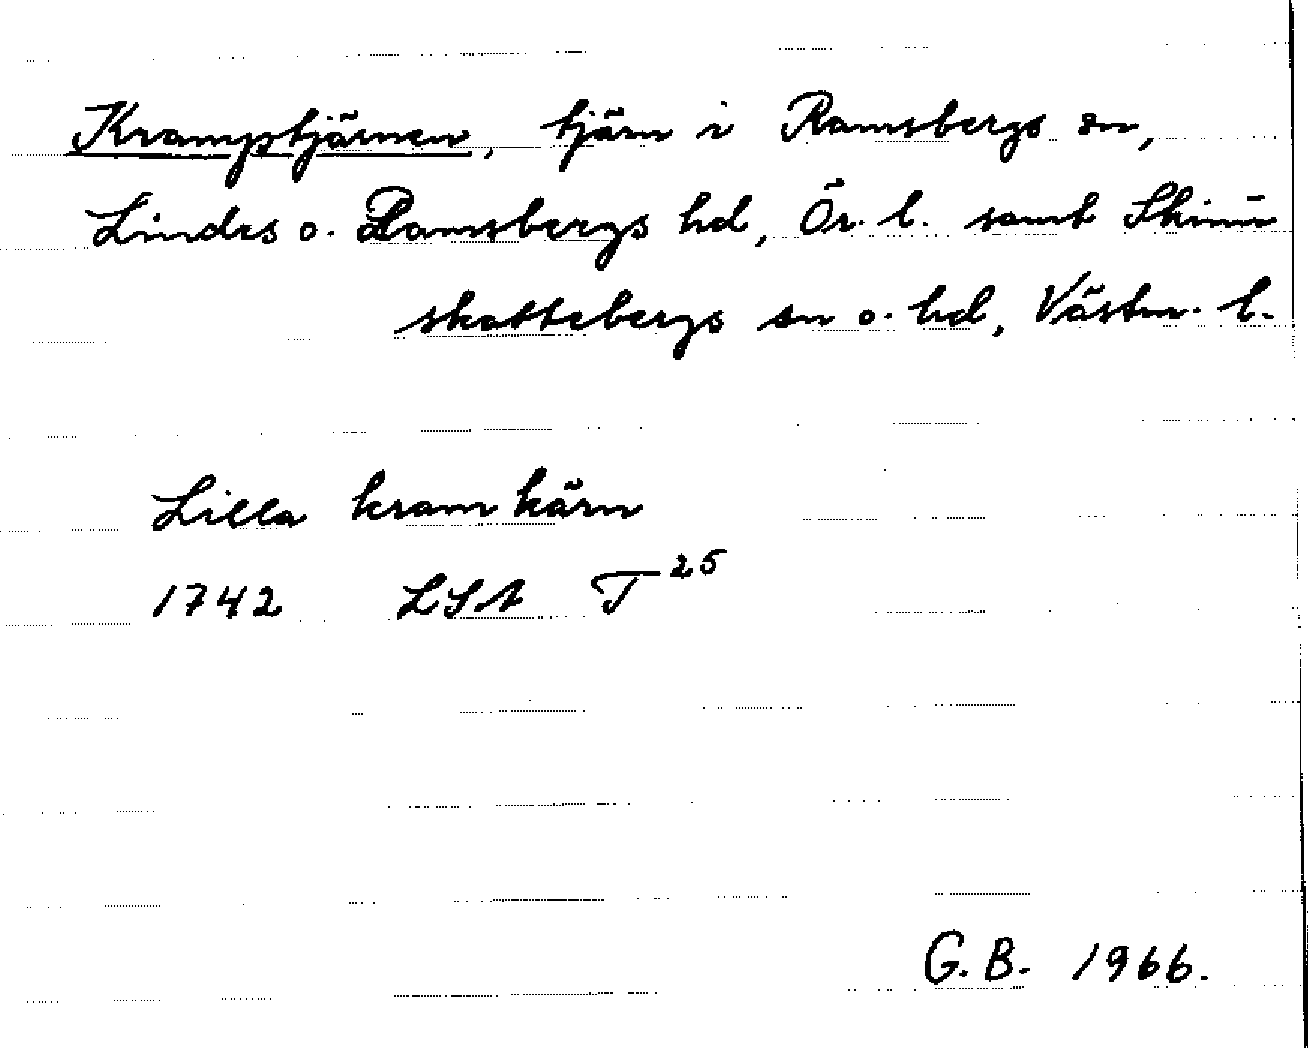 Kramptjärnen, tjärn i Ramsbergs sn,
Lindes o. Ramsbergs hd, Ör. l. samt Skinn
skattebergs sn o. hd, Västm. l.
Lilla kram kärn
1742 LSA T25
G. B. 1966.